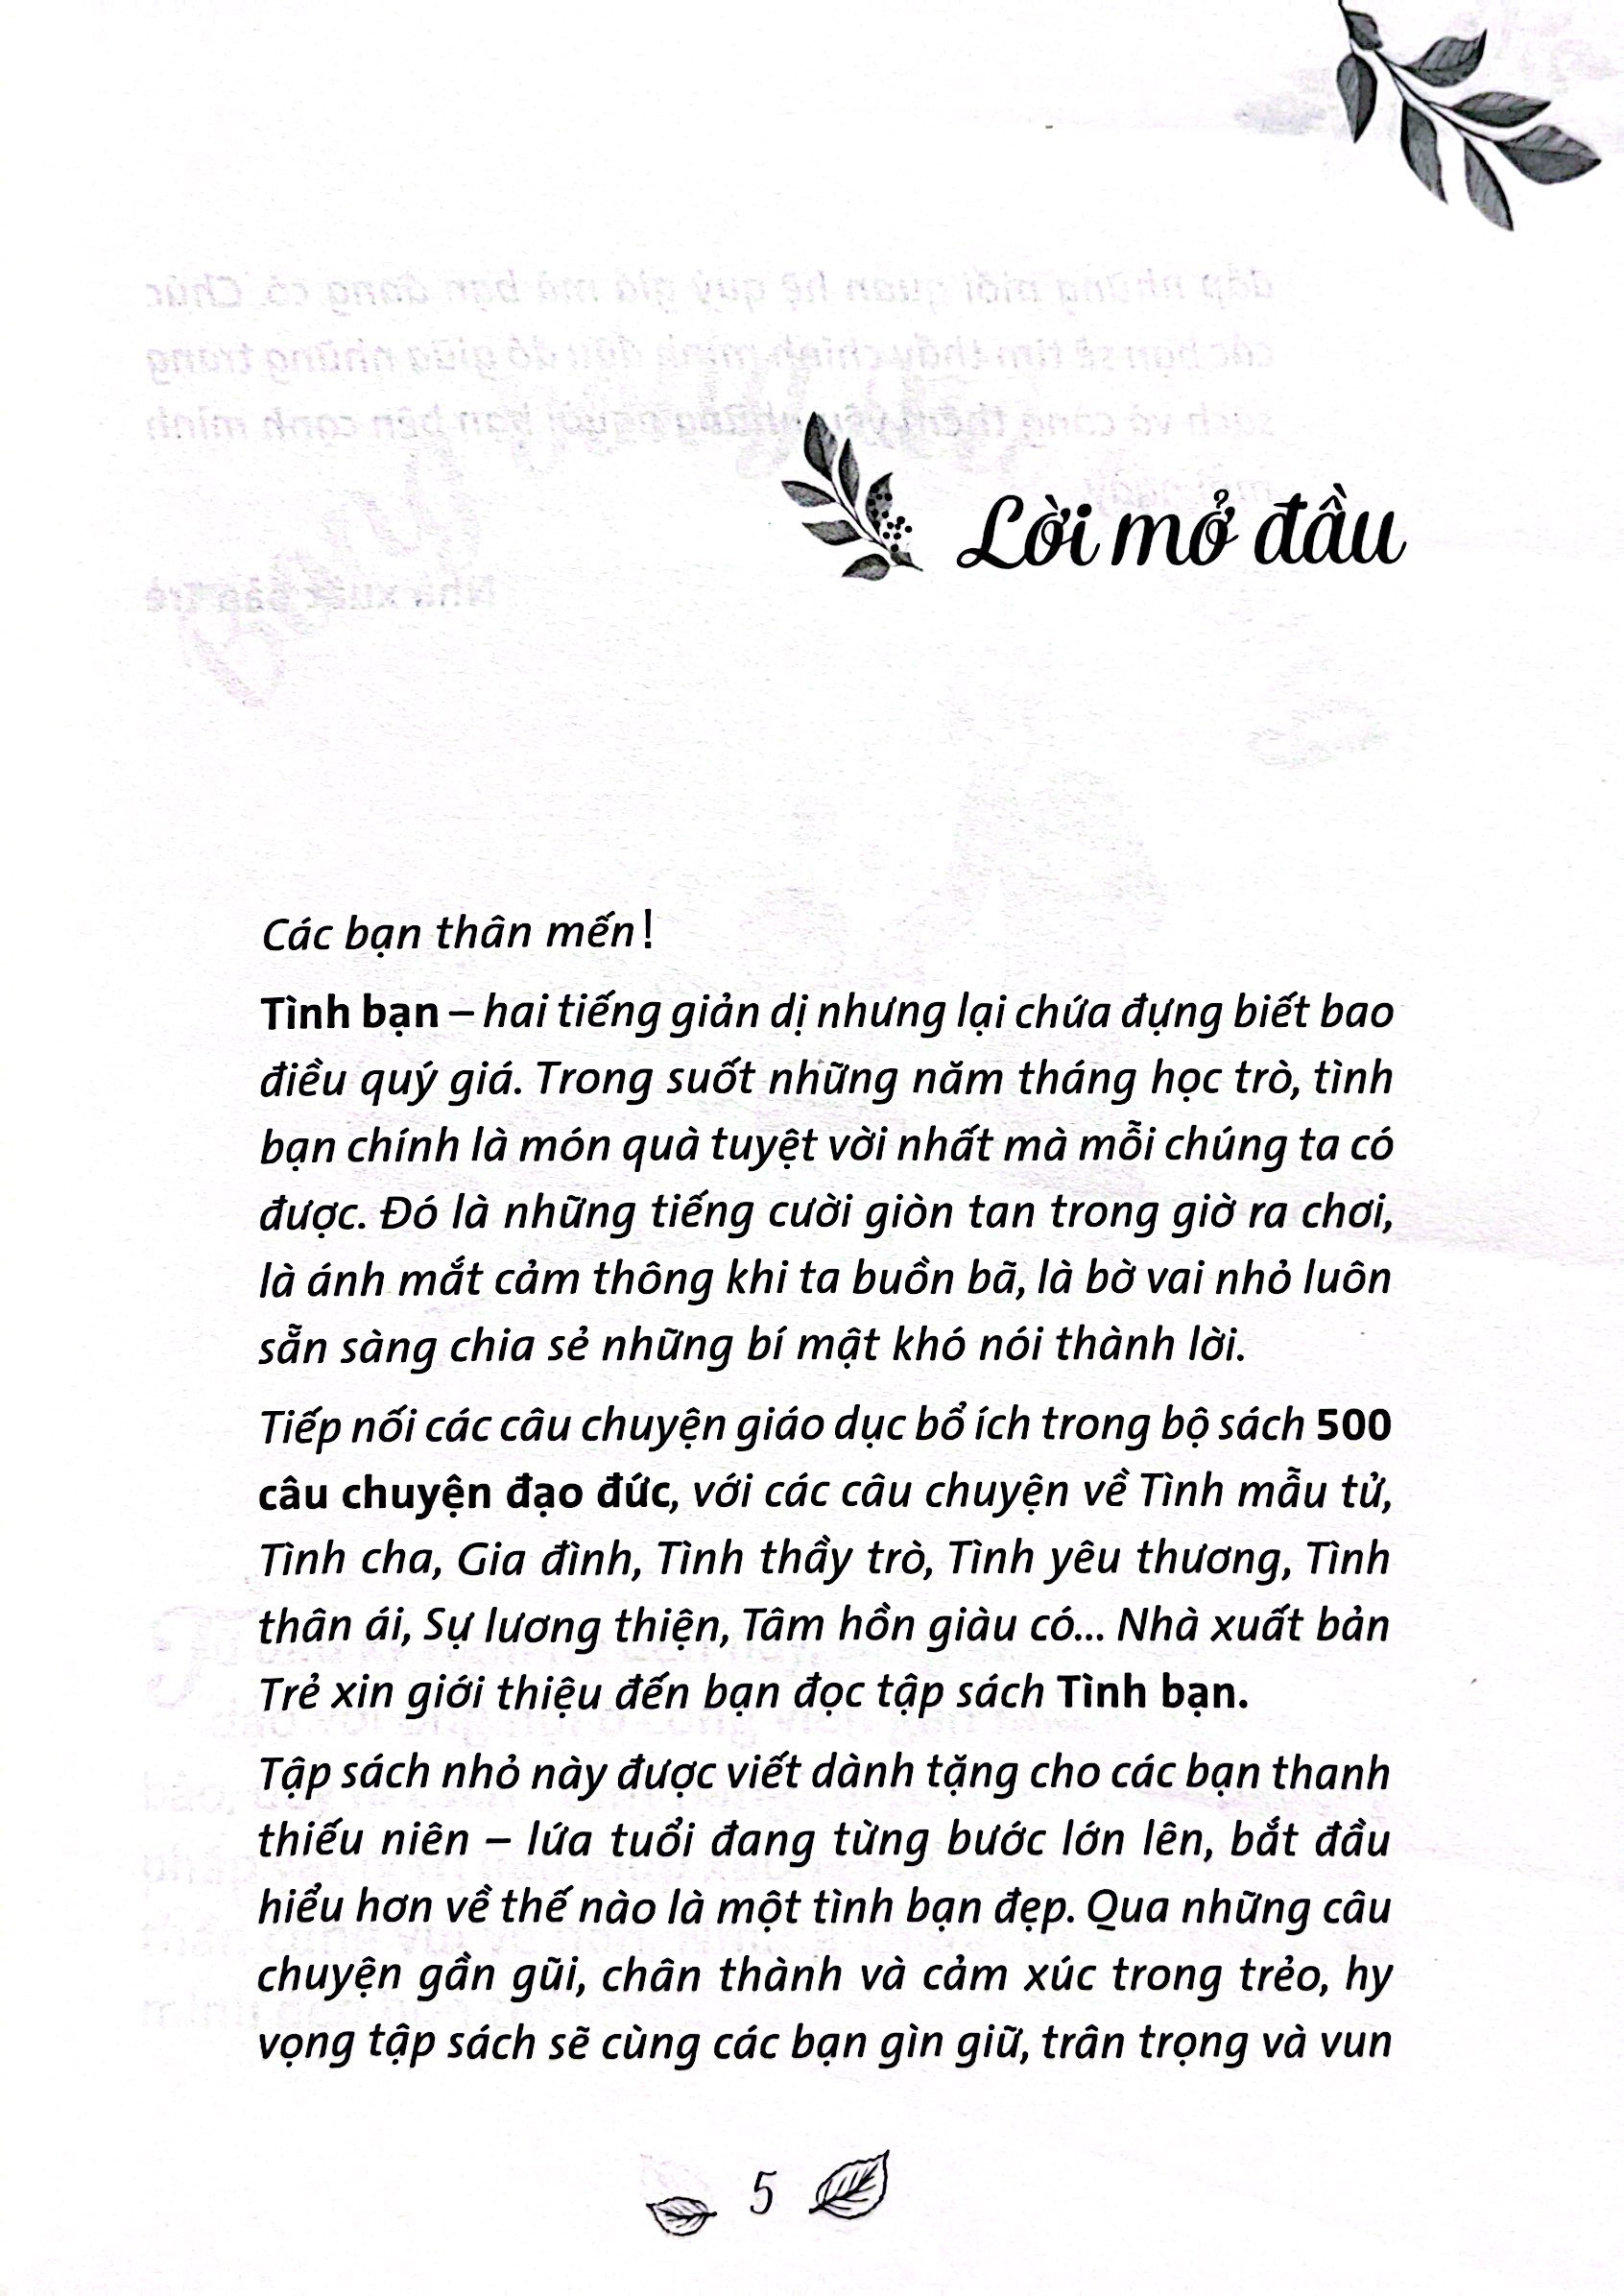 Lời mở đầu
Các bạn thân mến!
Tình bạn – hai tiếng giản dị nhưng lại chứa đựng biết bao
điều quý giá. Trong suốt những năm tháng học trò, tình
bạn chính là món quà tuyệt vời nhất mà mỗi chúng ta có
được. Đó là những tiếng cười giòn tan trong giờ ra chơi,
là ánh mắt cảm thông khi ta buồn bã, là bờ vai nhỏ luôn
sẵn sàng chia sẻ những bí mật khó nói thành lời.
Tiếp nối các câu chuyện giáo dục bổ ích trong bộ sách 500
câu chuyện đạo đức, với các câu chuyện về Tình mẫu tử,
Tình cha, Gia đình, Tình thầy trò, Tình yêu thương, Tình
thân ái, Sự lương thiện, Tâm hồn giàu có... Nhà xuất bản
Trẻ xin giới thiệu đến bạn đọc tập sách Tình bạn.
Tập sách nhỏ này được viết dành tặng cho các bạn thanh
thiếu niên – lứa tuổi đang từng bước lớn lên, bắt đầu
hiểu hơn về thế nào là một tình bạn đẹp. Qua những câu
chuyện gần gũi, chân thành và cảm xúc trong trẻo, hy
vọng tập sách sẽ cùng các bạn gìn giữ, trân trọng và vun
5